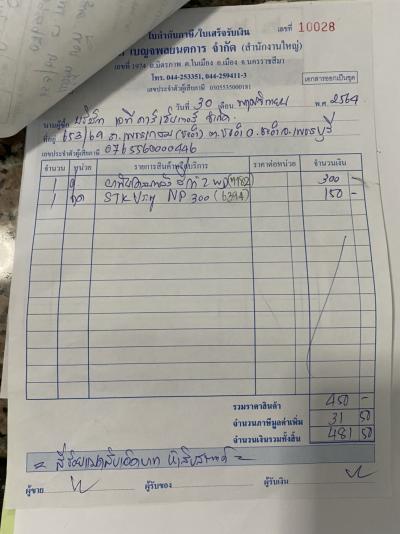 ใบกำกับภาษี/ใบเสร็จรับเงิน
เลขที่ 10028
เบญจพลยนตการ จำกัด (สำนักงานใหญ่)
เลขที่ 1974 ถ.มิตรภาพ ต.ในเมือง อ.เมือง จ.นครราชสีมา
โทร. 044-253351, 044-259411-3
เลขประจำตัวผู้เสียภาษี 0305535000181
เอกสารออกเป็นชุด
วันที่ 30 เดือน พฤศจิกายน พ.ศ. 2564
นามผู้ซื้อ บริษัท จำกัด
ที่อยู่ 653/69 ถ.เพชรเกษม
เลขประจำตัวผู้เสียภาษี 0765560000446
จำนวน หน่วย รายการสินค้าหรือบริการ ราคาต่อหน่วย จำนวนเงิน
1 300 -
1 STK NP 300 (6394) 150 -
รวมราคาสินค้า 450 -
จำนวนภาษีมูลค่าเพิ่ม 31 50
จำนวนเงินรวมทั้งสิ้น 481 50
= สี่ร้อยแปดสิบเอ็ดบาท ห้าสิบสตางค์ =
ผู้ขาย ผู้รับของ ผู้รับเงิน